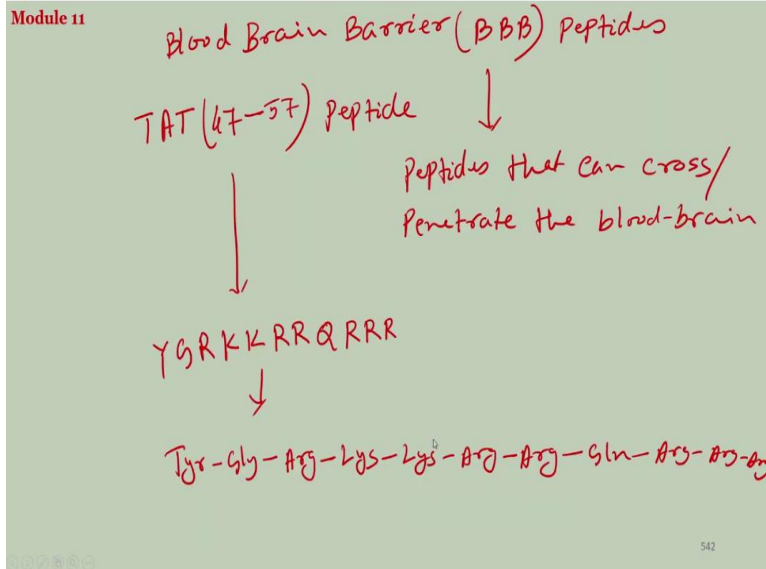 Module 11
Blood Brain Barrier (BBB) Peptides
TAT (47-57) Peptide
Peptides that can cross/
Penetrate the blood-brain
YGRKKRRQRRR
Tyr-Gly-Arg-Lys-Lys-Arg-Arg-Gln-Arg-Arg-Arg
542